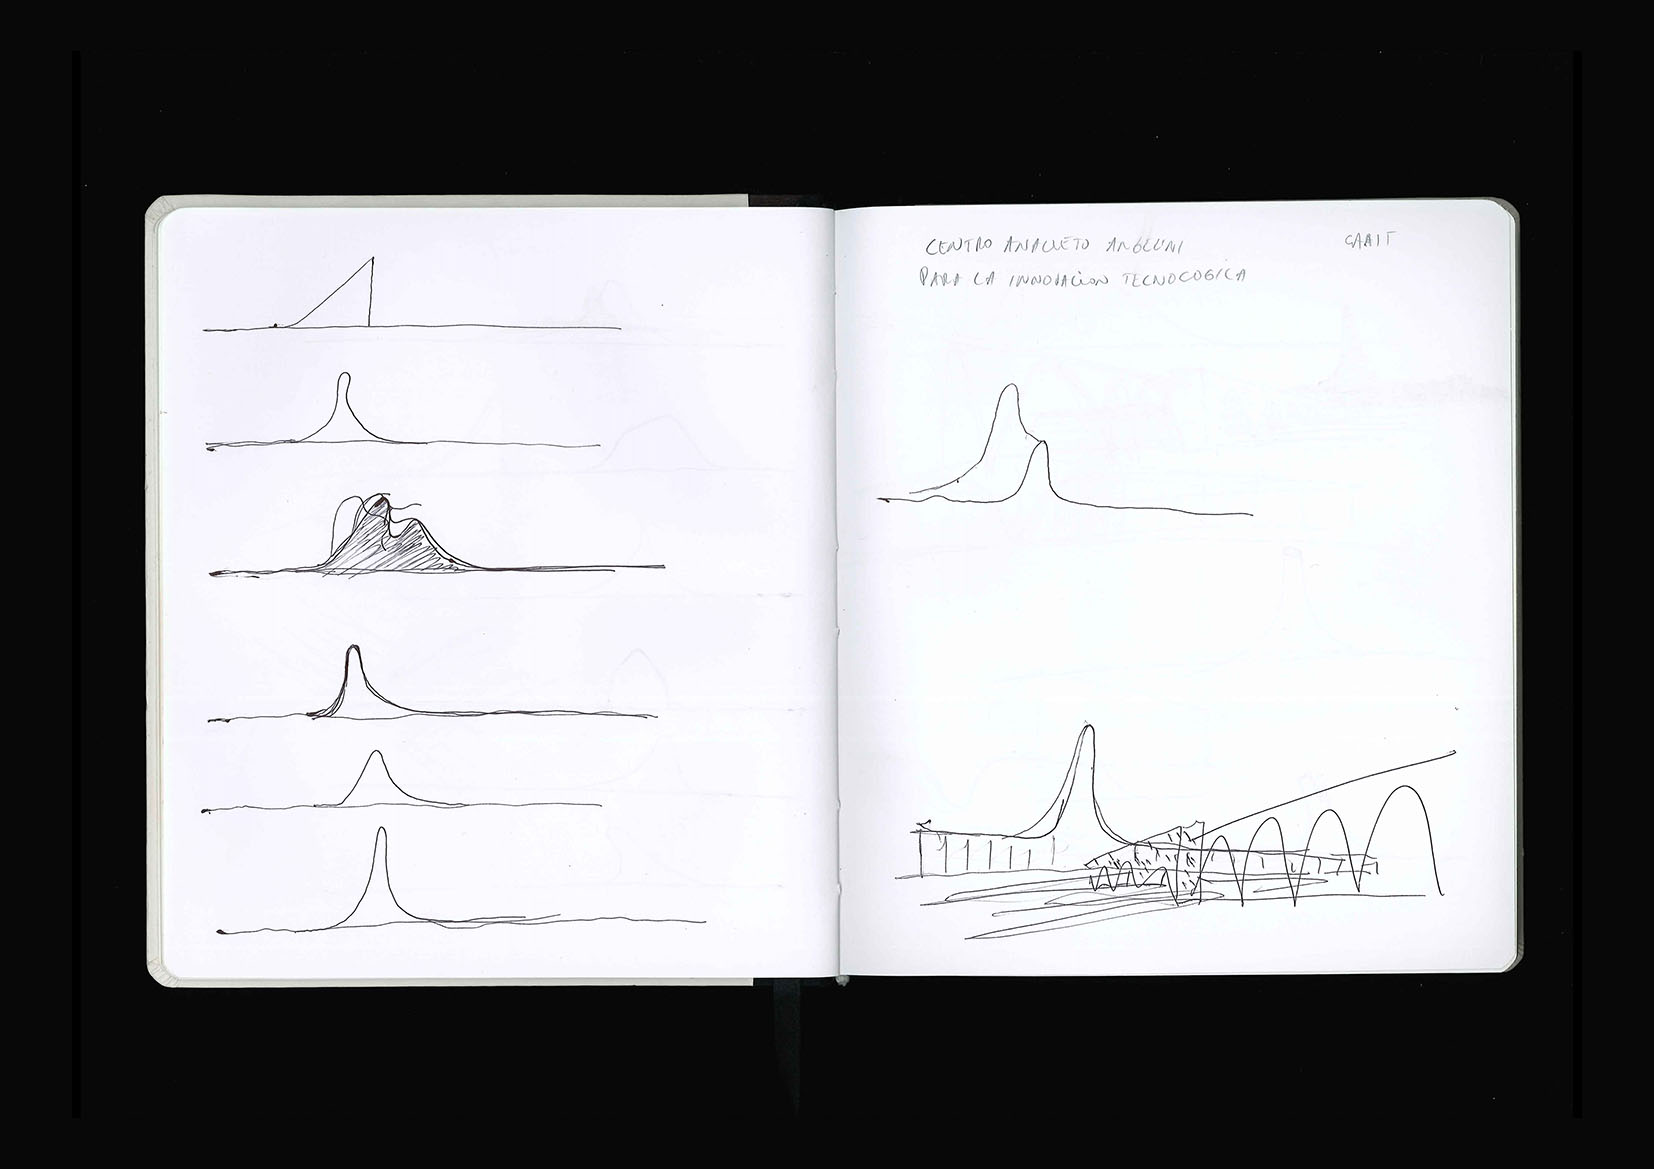 CENTRO ANACLETO ANGELINI
CAAIT
PARA LA INNOVACION TECNOLOGICA